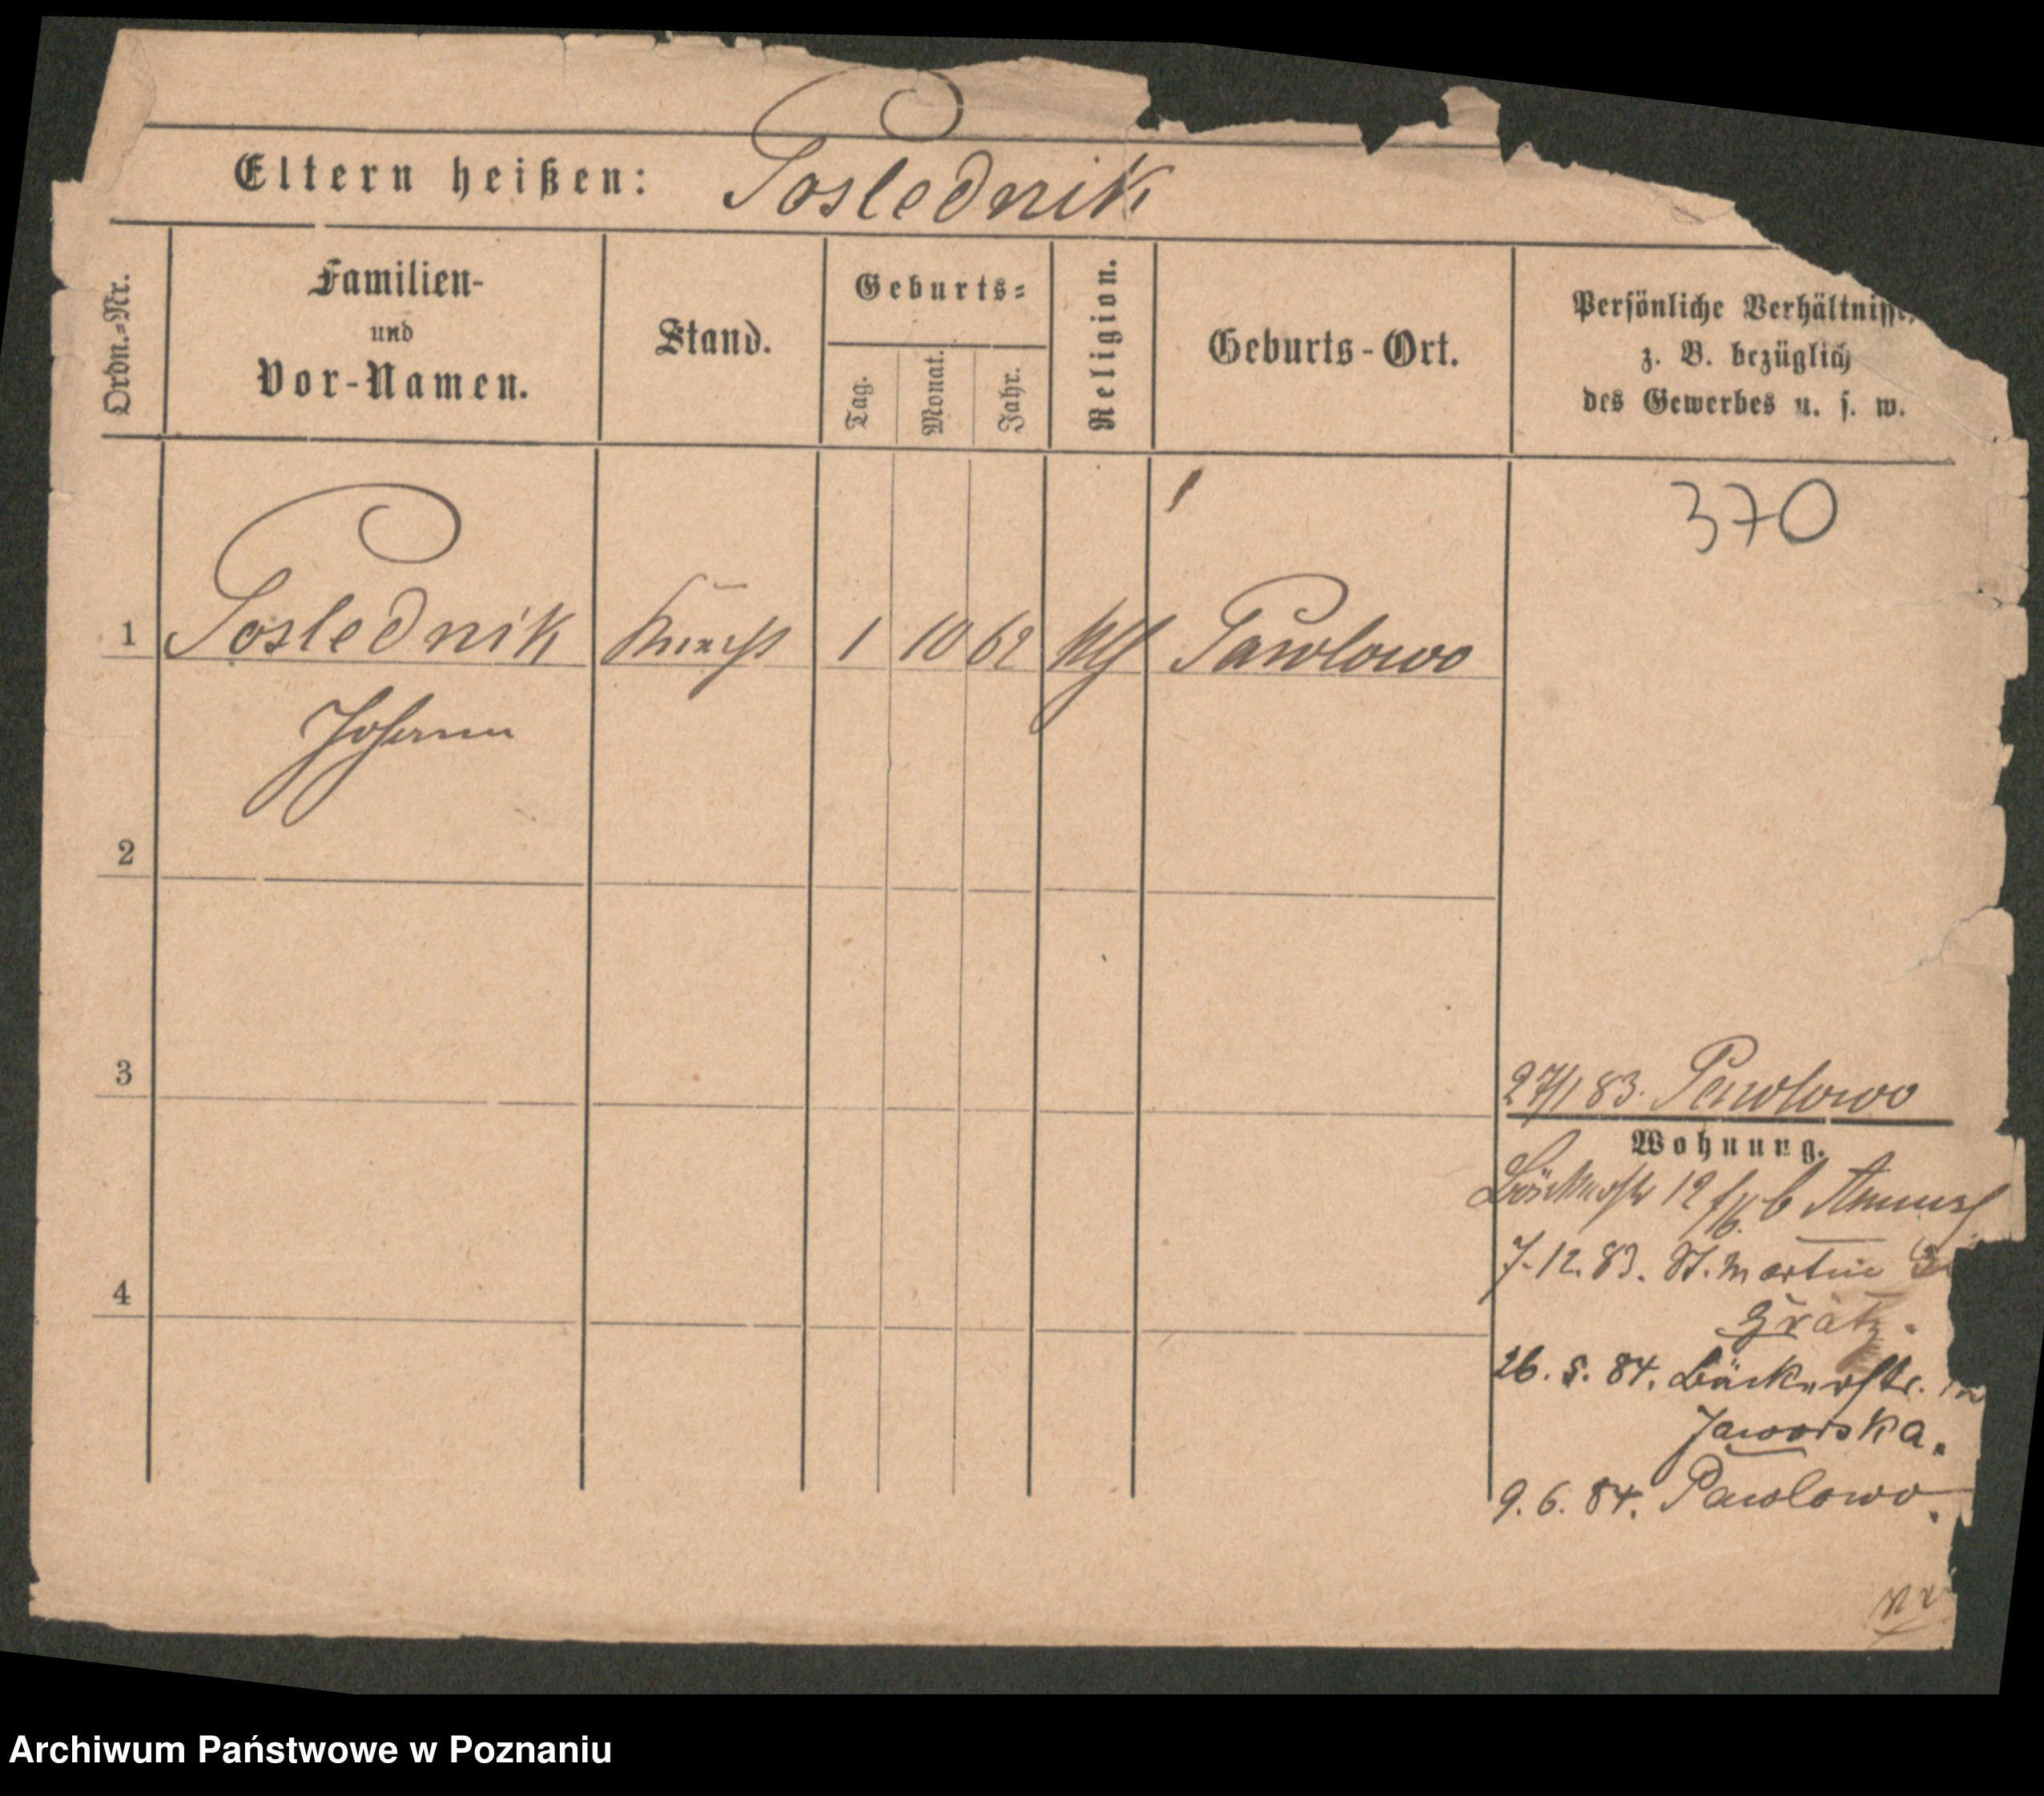 Eltern heißen: Poslednik
Ordn.=Nr.
Familien-
und
Vor-Namen.
Stand.
Geburts=
Tag.
Monat.
Jahr.
Religion.
Geburts-Ort.
Persönliche Verhältnisse,
z. B. bezüglich
des Gewerbes u. s. w.
370
1 Poslednik Knecht 1 10 62 kth Pawlowo
Johann
2
3
27/1 83. Pawlowo
Wohnung.
Bäckerstr 12 b
7.12.83. St. Martin
Grätz.
4
26.5.84. Bäckerstr.
Jaworska.
9.6.84. Pawlowo.
Archiwum Państwowe w Poznaniu